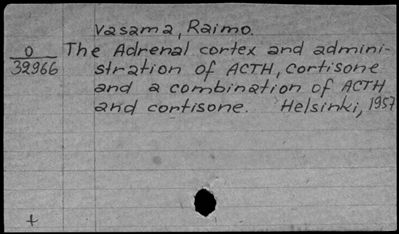 Vasama, Raimo.
O
32966
The Adrenal cortex and admini-
stration of ACTH, cortisone
and a combination of ACTH
and cortisone. Helsinki, 1957
+